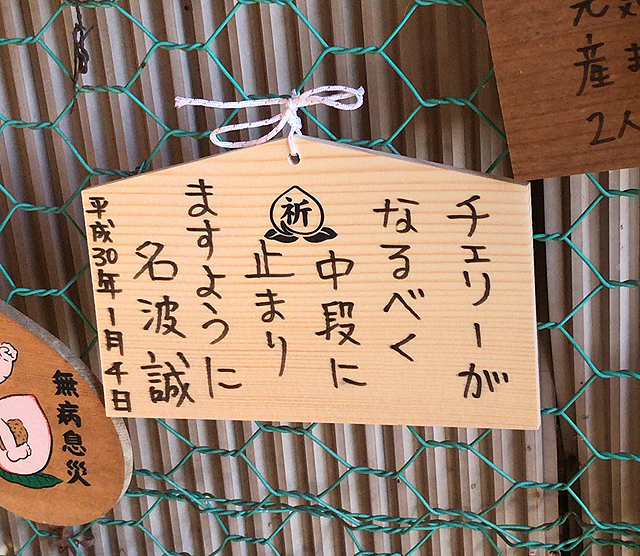 チェリーが
なるべく
中段に
祈
止まり
ますように
名波誠
平成30年1月4日
無病息災
産ま
2人